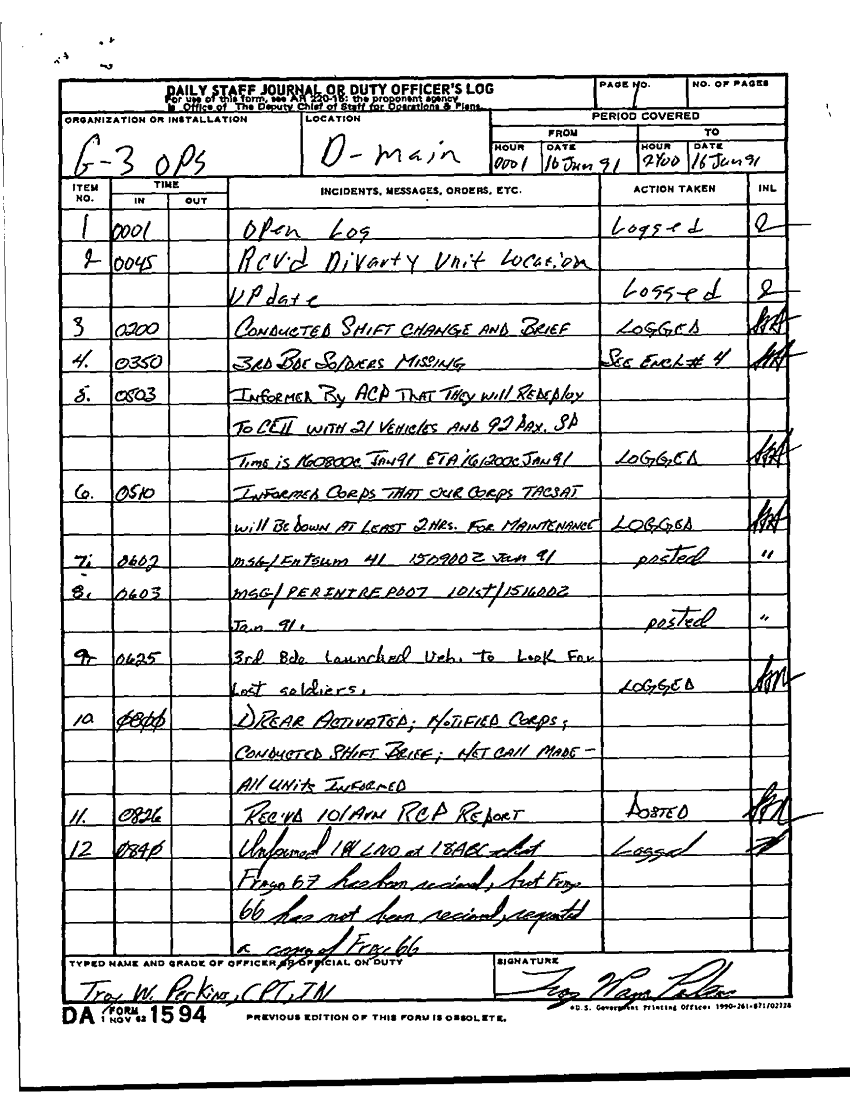 DAILY STAFF JOURNAL OR DUTY OFFICER'S LOG
For use of this form, see AR 220-15; the proponent agency
is Office of The Deputy Chief of Staff for Operations & Plans.
PAGE NO.
1
NO. OF PAGES
ORGANIZATION OR INSTALLATION
G-3 OPS
LOCATION
D-main
PERIOD COVERED
FROM TO
HOUR DATE HOUR DATE
0001 16 Jun 91 2400 16 Jun 91
ITEM NO. TIME IN OUT INCIDENTS, MESSAGES, ORDERS, ETC. ACTION TAKEN INL
1 0001 Open Log Logged
2 0045 RCV'd Divarty Unit Location
UPdate Logged
3 0200 CONDUCTED SHIFT CHANGE AND BRIEF LOGGED
4. 0350 3RD BDE SOLDIERS MISSING SEE ENCL # 4
5. 0503 INFORMED BY ACP THAT THEY WILL REDEPLOY
TO CEII WITH 21 VEHICLES AND 92 PAX. SP
TIME IS 160800C JAN 91 ETA 161200C JAN 91 LOGGED
6. 0510 INFORMED CORPS THAT OUR CORPS TACSAT
WILL BE DOWN AT LEAST 2 HRS. FOR MAINTENANCE LOGGED
7. 0602 msg/Entsum 41 150900Z Jan 91 posted "
8. 0603 msg/PERINTREP007 101st/151600Z
Jan 91. posted "
9. 0625 3rd Bde Launched Veh. to Look For
Lost soldiers. LOGGED
10. 0800 DREAR ACTIVATED; NOTIFIED CORPS;
CONDUCTED SHIFT BRIEF; NET CALL MADE -
All UNITS INFORMED
11. 0826 REC'VD 101AVN RCP REPORT POSTED
12 0840 Informed LNO at 18ABC that
Frago 67 has been received, but Frago
66 has not been received, requested
a copy of Frago 66 Logged
TYPED NAME AND GRADE OF OFFICER OR OFFICIAL ON DUTY
Troy W. Perkins, CPT, IN
SIGNATURE
Troy Perkins
DA FORM 1 NOV 62 1594
PREVIOUS EDITION OF THIS FORM IS OBSOLETE.
*U.S. Government Printing Office: 1990-261-871/02728